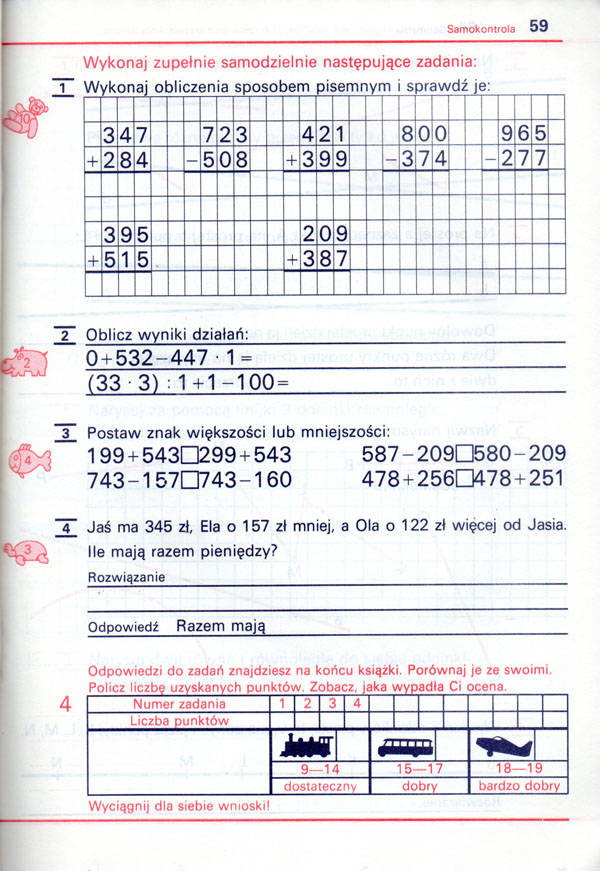 Samokontrola 59
Wykonaj zupełnie samodzielnie następujące zadania:
1 Wykonaj obliczenia sposobem pisemnym i sprawdź je:
347 723 421 800 965
+284 −508 +399 −374 −277
395 209
+515 +387
10
2 Oblicz wyniki działań:
0+532−447 · 1 =
2
(33 · 3) : 1 + 1 − 100 =
3 Postaw znak większości lub mniejszości:
199+543□299+543 587−209□580−209
4
743−157□743−160 478+256□478+251
4 Jaś ma 345 zł, Ela o 157 zł mniej, a Ola o 122 zł więcej od Jasia.
3
Ile mają razem pieniędzy?
Rozwiązanie
Odpowiedź Razem mają
Odpowiedzi do zadań znajdziesz na końcu książki. Porównaj je ze swoimi.
Policz liczbę uzyskanych punktów. Zobacz, jaka wypadła Ci ocena.
4 Numer zadania 1 2 3 4
Liczba punktów
9—14 15—17 18—19
dostateczny dobry bardzo dobry
Wyciągnij dla siebie wnioski!